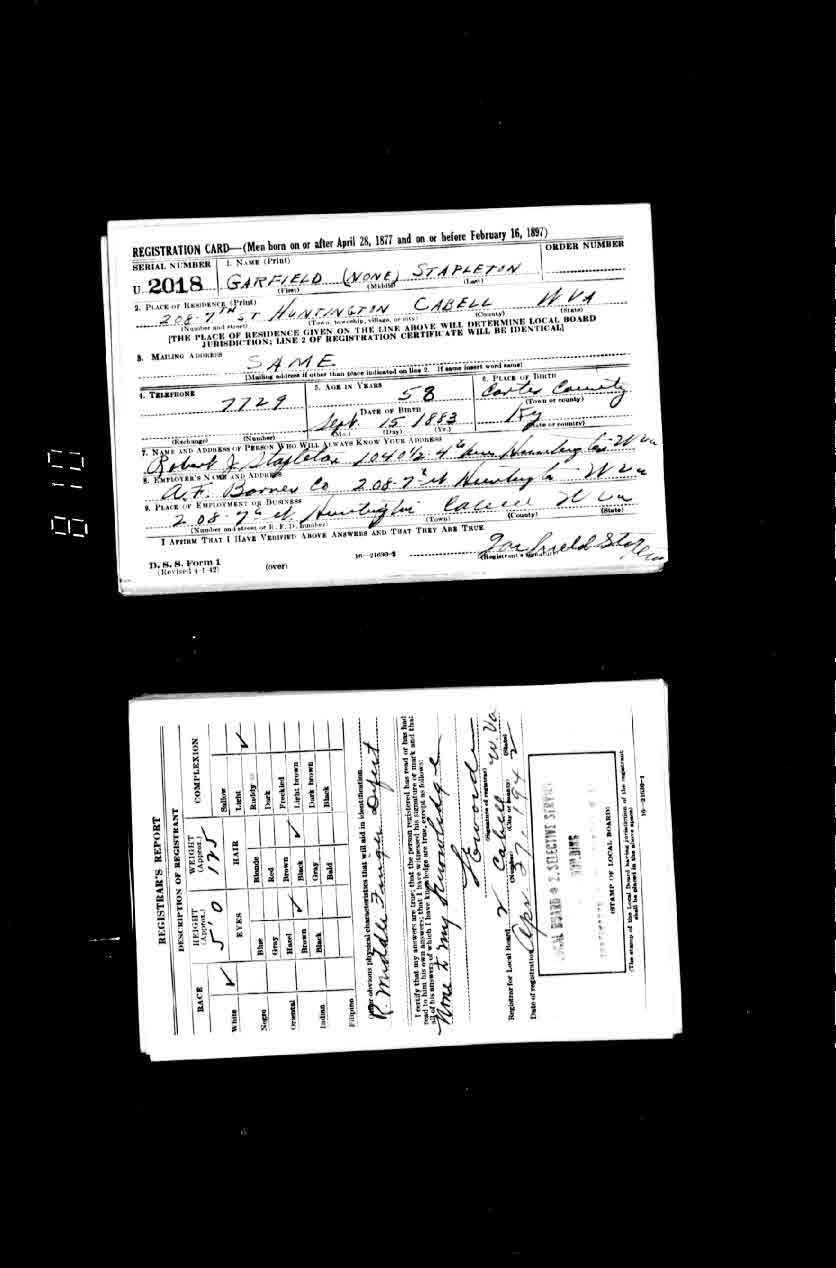 REGISTRATION CARD—(Men born on or after April 28, 1877 and on or before February 16, 1897)
SERIAL NUMBER 1. NAME (Print) ORDER NUMBER
U 2018 GARFIELD (NONE) STAPLETON
(First) (Middle) (Last)
2. PLACE OF RESIDENCE (Print)
208-7TH ST HUNTINGTON CABELL W VA
(Number and street) (Town, township, village, or city) (County) (State)
[THE PLACE OF RESIDENCE GIVEN ON THE LINE ABOVE WILL DETERMINE LOCAL BOARD
JURISDICTION; LINE 2 OF REGISTRATION CERTIFICATE WILL BE IDENTICAL]
3. MAILING ADDRESS
SAME
[Mailing address if other than place indicated on line 2. If same insert word same]
4. TELEPHONE 5. AGE IN YEARS 6. PLACE OF BIRTH
7729 58 Carter County
(Town or county)
DATE OF BIRTH
Sept. 15 1883 Ky
(Exchange) (Number) (Mo.) (Day) (Yr.) (State or country)
7. NAME AND ADDRESS OF PERSON WHO WILL ALWAYS KNOW YOUR ADDRESS
Robert J. Stapleton 1040 1/2 4th Ave Huntington W Va
8. EMPLOYER'S NAME AND ADDRESS
A.F. Barnes Co 208-7th st Huntington W Va
9. PLACE OF EMPLOYMENT OR BUSINESS
208-7th st. Huntington Cabell W Va
(Number and street or R. F. D. number) (Town) (County) (State)
I AFFIRM THAT I HAVE VERIFIED ABOVE ANSWERS AND THAT THEY ARE TRUE.
D. S. S. Form 1
(Revised 4-1-42) (over) 16—21630-2 Garfield Stapleton
(Registrant's signature)
8 10
REGISTRAR'S REPORT
DESCRIPTION OF REGISTRANT
RACE HEIGHT (Approx.) WEIGHT (Approx.) COMPLEXION
5' 0 125
White ✓ EYES HAIR Sallow
Light ✓
Negro Blue Blonde Ruddy
Gray Red Dark
Oriental Hazel Brown Freckled
Brown ✓ Black ✓ Light brown
Indian Black Gray Dark brown
Bald Black
Filipino
Other obvious physical characteristics that will aid in identification
R. Middle Finger
I certify that my answers are true; that the person registered has read or has had
read to him his own answers; that I have witnessed his signature or mark and that
all of his answers of which I have knowledge are true, except as follows:
None to my knowledge
(Signature of registrar)
Registrar for Local Board 2 Cabell W. Va
(Number) (City or county) (State)
Date of registration Apr 27 1942
LOCAL BOARD
SELECTIVE SERVICE
BUILDING
(STAMP OF LOCAL BOARD)
(The stamp of the Local Board having jurisdiction of the registrant
shall be placed in the above space)
16—21630-1